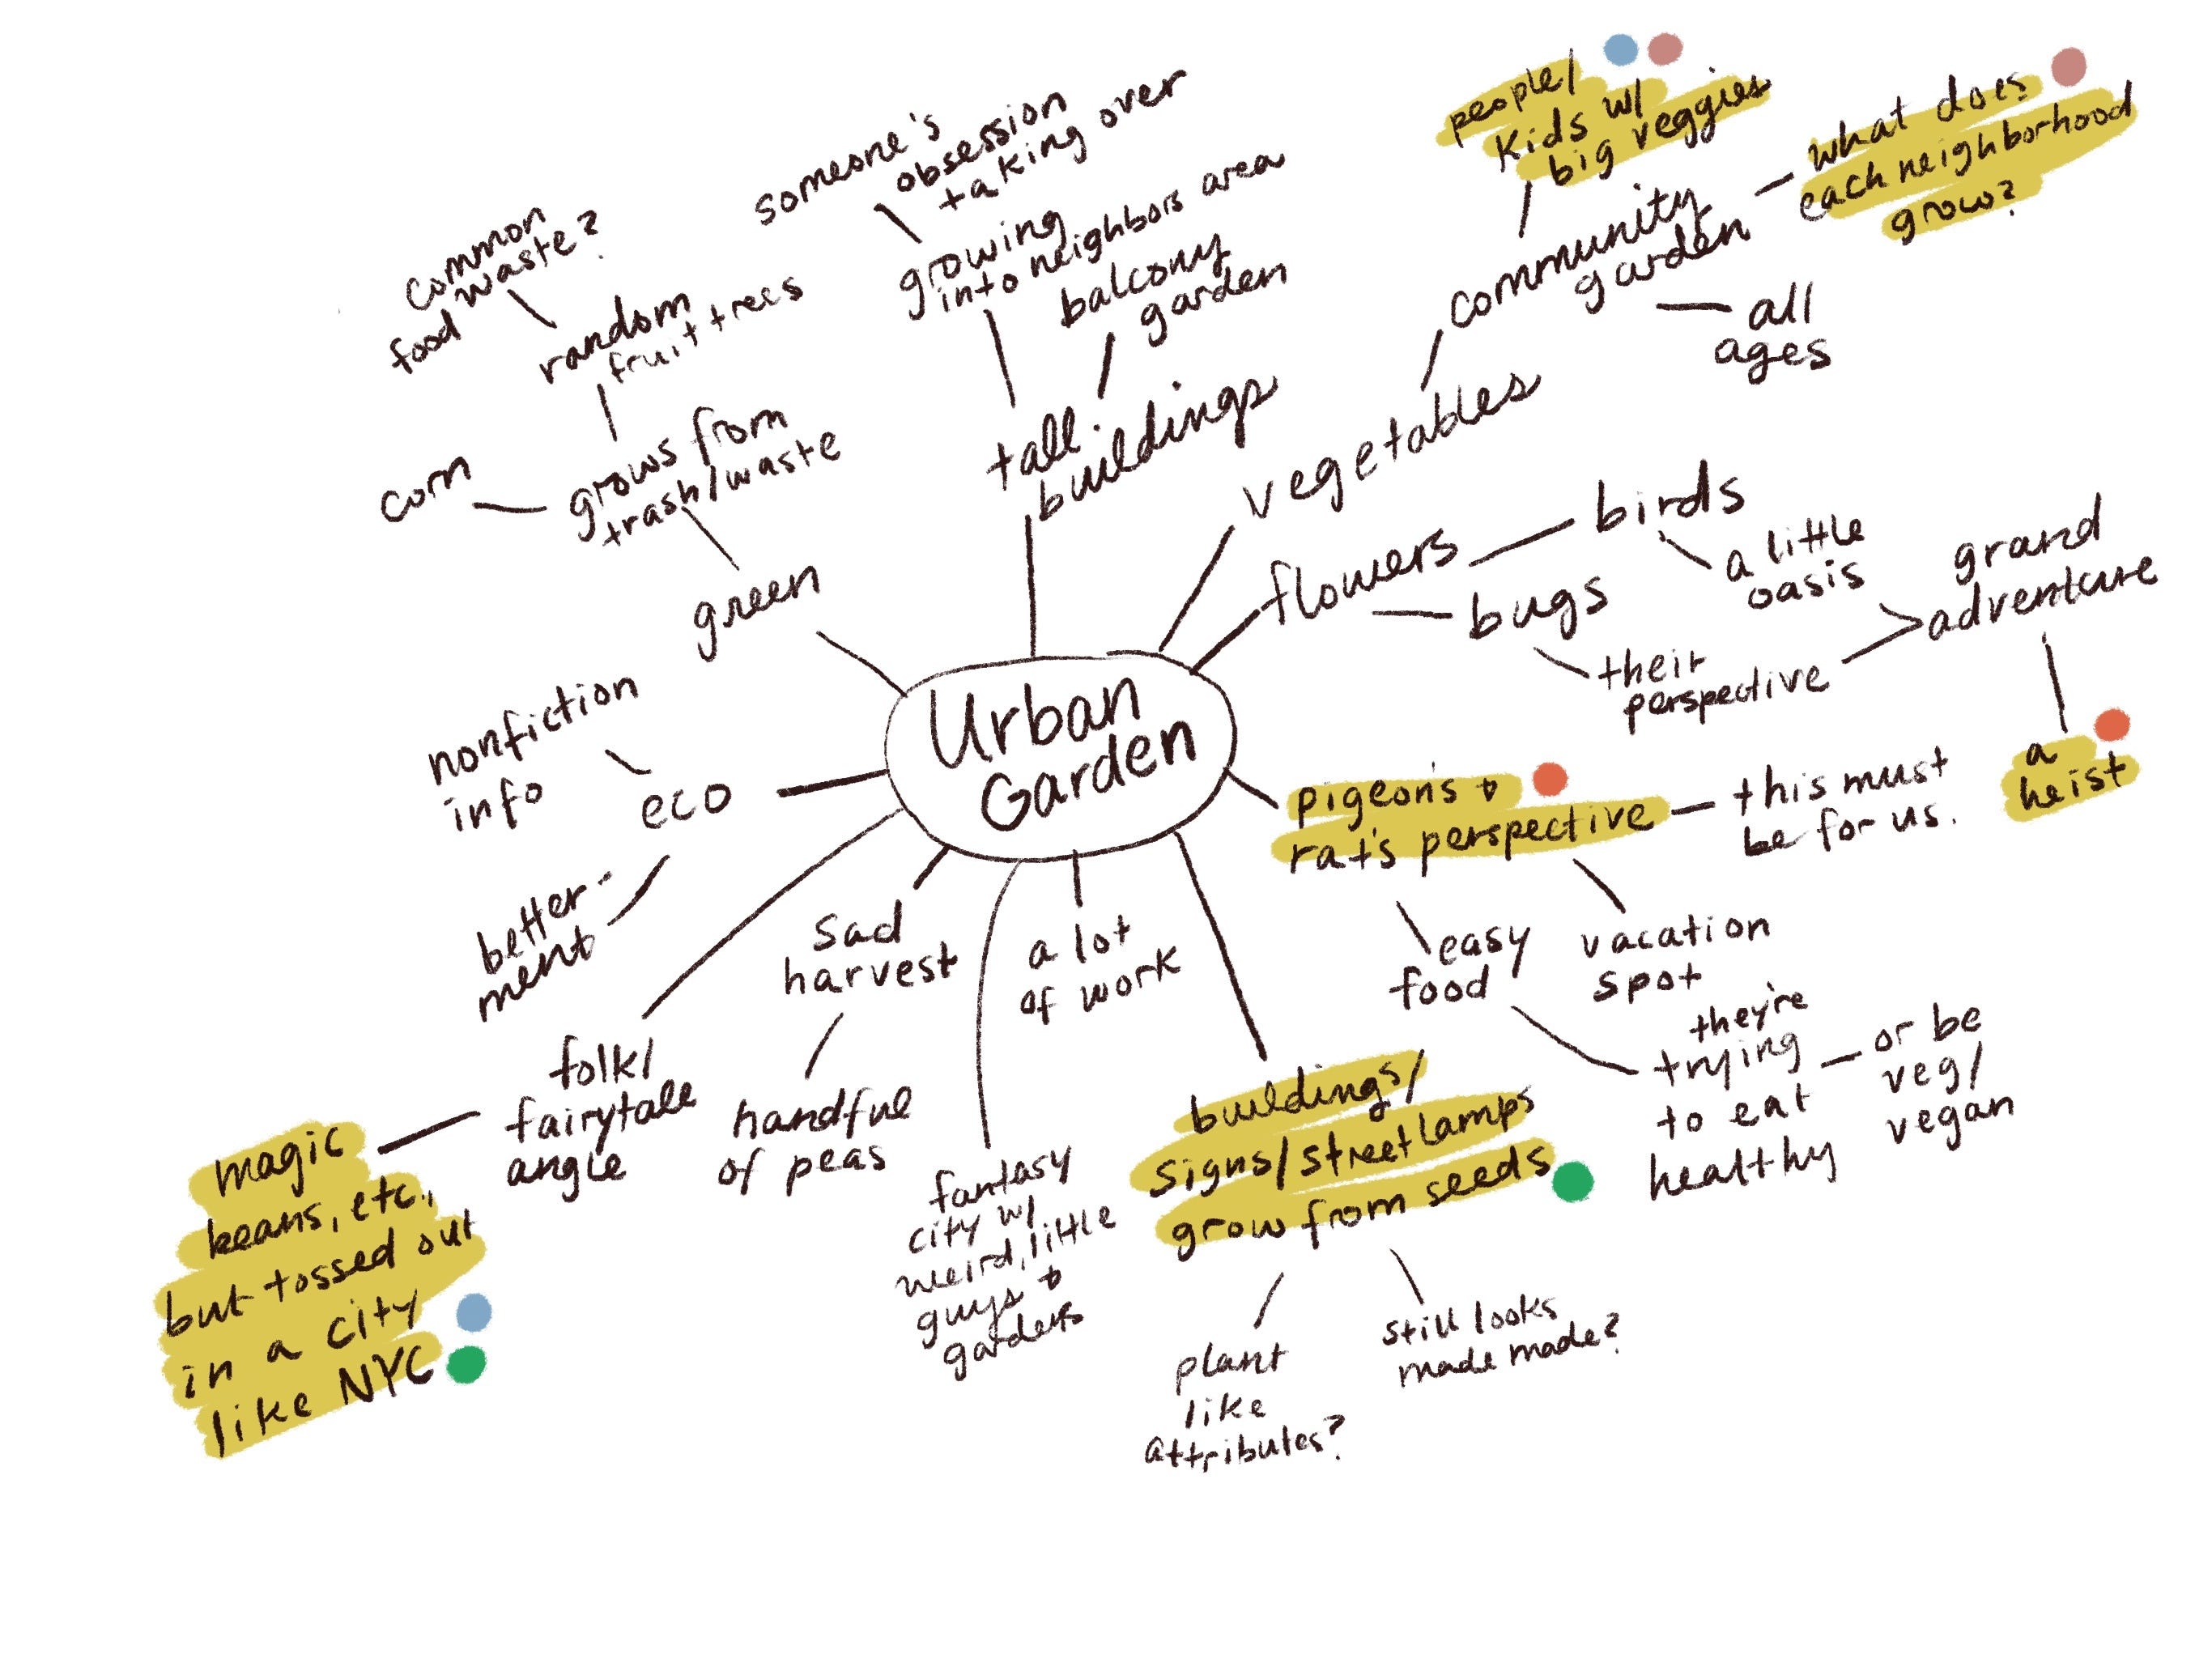 Urban
Garden
tall
buildings
growing
into neighbors area
someone's
obsession
taking over
balcony
garden
vegetables
community
garden
people/
kids w/
big veggies
what does
each neighborhood
grow?
all
ages
flowers
birds
a little
oasis
bugs
their
perspective
grand
adventure
a
heist
pigeon's &
rat's perspective
this must
be for us.
vacation
spot
easy
food
they're
trying
to eat
healthy
or be
veg/
vegan
buildings/
signs/streetlamps
grow from seeds
plant
like
attributes?
still looks
made made?
a lot
of work
fantasy
city w/
weird, little
guys &
gardens
sad
harvest
handful
of peas
folk/
fairytale
angle
magic
beans, etc.,
but tossed out
in a city
like NYC
eco
nonfiction
info
better-
ment
green
grows from
trash/waste
corn
random
fruit trees
common
food waste?